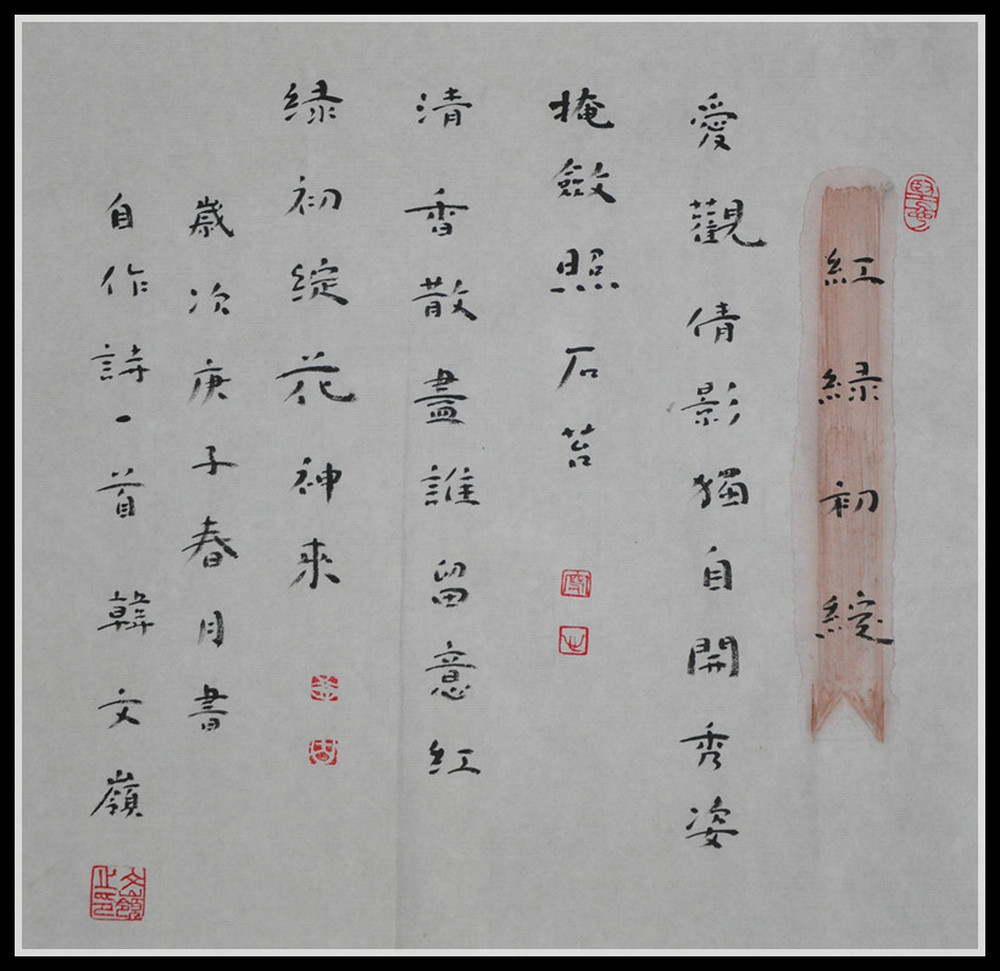 紅緑初綻
愛觀倩影獨自開秀姿
掩斂照石苔
清香散盡誰留意紅
緑初綻花神來
歲次庚子春月書
自作詩一首韓文嶺